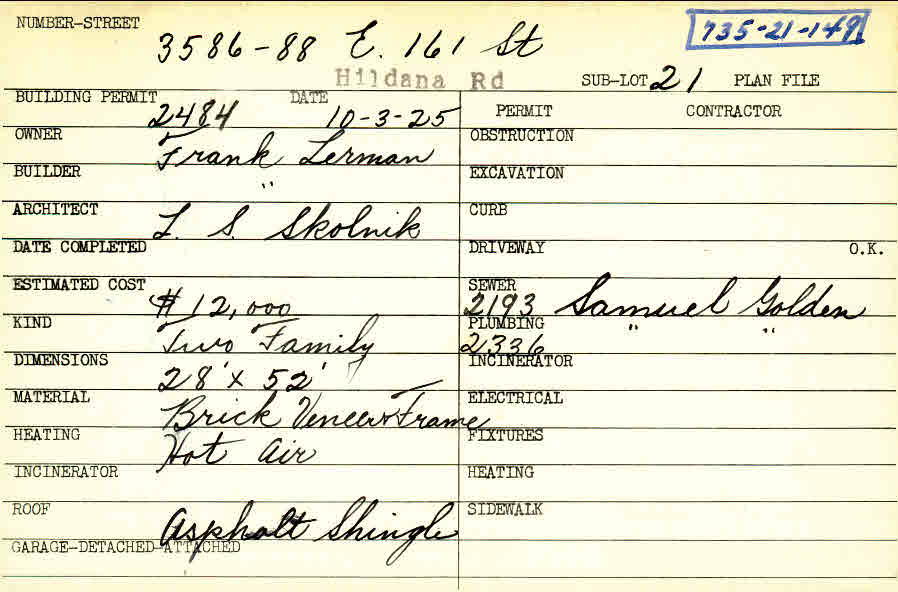 NUMBER-STREET 3586-88 E. 161 St 735-21-149
Hildana Rd SUB-LOT 21 PLAN FILE
BUILDING PERMIT 2484 DATE 10-3-25 PERMIT CONTRACTOR
OWNER Frank Lerman OBSTRUCTION
BUILDER " EXCAVATION
ARCHITECT L. S. Skolnik CURB
DATE COMPLETED DRIVEWAY O.K.
ESTIMATED COST $12,000 SEWER 2193 Samuel Golden
KIND Two Family PLUMBING 2336 " "
DIMENSIONS 28' x 52' INCINERATOR
MATERIAL Brick Veneer & Frame ELECTRICAL
HEATING Hot Air FIXTURES
INCINERATOR HEATING
ROOF Asphalt Shingle SIDEWALK
GARAGE-DETACHED-ATTACHED